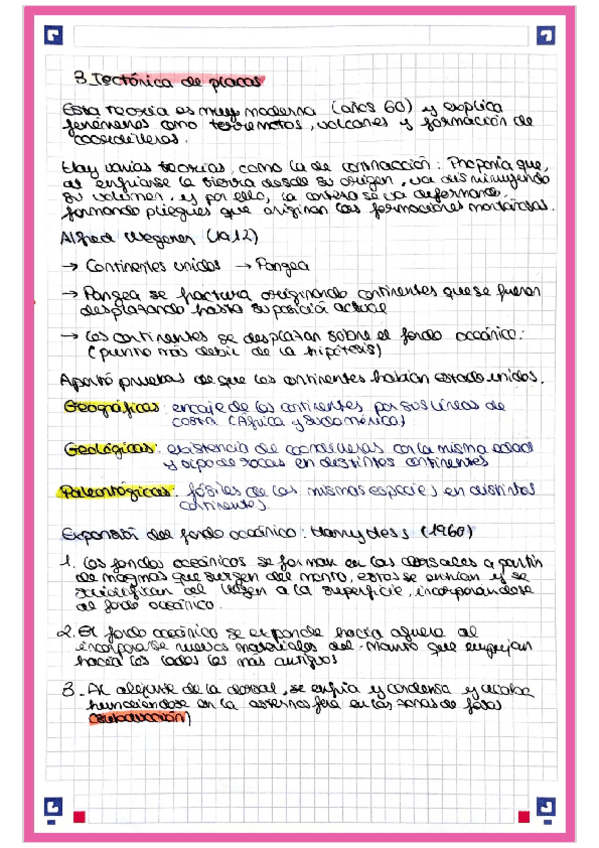 3. Tectónica de placas
Esta teoría es muy moderna (años 60) y explica
fenómenos como terremotos, volcanes y formación de
coordilleras.
Hay varias teorías, como la de contracción: Proponía que,
al enfriarse la tierra desde su origen, va disminuyendo
su volumen, y por ello, la corteza se va deformando,
formando pliegues que originan las formaciones montañosas.
Alfred Wegener (1912)
→ Continentes unidos → Pangea
→ Pangea se fractura originando continentes que se fueron
desplazando hasta su posición actual
→ Los continentes se desplazan sobre el fondo oceánico:
(punto más debil de la hipótesis)
Aportó pruebas de que los continentes habían estado unidos.
Geográficas: encaje de los continentes por sus líneas de
costa (África y Sudamérica)
Geológicas: existencia de coordilleras con la misma edad
y tipo de rocas en distintos continentes
Paleontógicas: fósiles de las mismas especies en distintos
continentes.
Expansión del fondo oceánico: Harry Hess (1960)
1. Los fondos oceánicos se forman en las dorsales a partir
de magmas que surgen del manto, estos se enfrían y se
solidifican al llegar a la superficie, incorporándose
al fondo oceánico.
2. El fondo oceánico se expande hacia afuera al
incorporarse nuevos materiales del manto que empujan
hacia los lados los más antiguos
3. Al alejarse de la dorsal, se enfría y condensa y acaba
hundiéndose en la astenosfera en las zonas de fosas
(subducción)